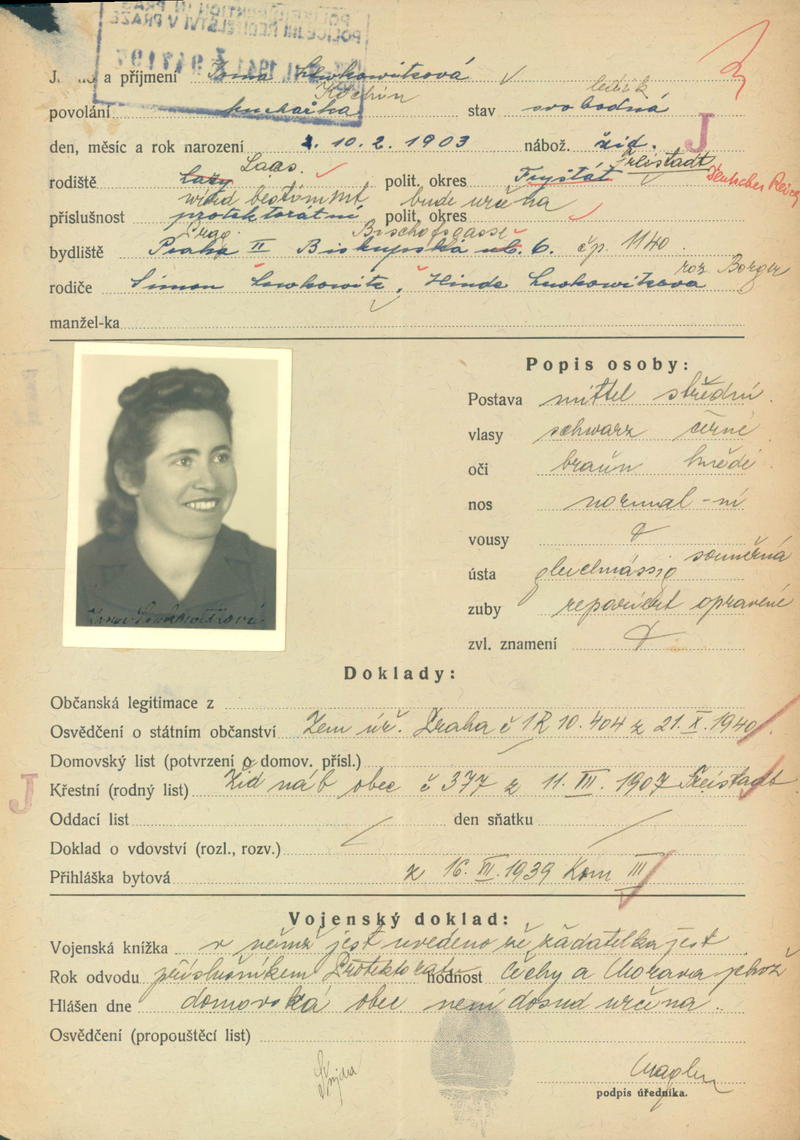 a příjmení
Köchin ledik
povolání kuchařka stav svobodná
den, měsíc a rok narození 10.2.1903 nábož. žid. J
Laas. Freistadt
rodiště Lazy polit. okres Fryštát Deutsches Reich
wird bestimmt bude určena
příslušnost protektorátní polit. okres
Prag Bischofsgasse
bydliště Praha II Biskupská ul. 6. čp. 1140
roz. Borger
rodiče Simon Lewkowitz, Hinda Lewkowitzova
manžel-ka
Popis osoby:
Postava mittel střední
vlasy schwarz černé
oči braun hnědé
nos normal-ní
vousy
ústa gleichmässig souměrná
zuby repariert opravené
zvl. znamení
Doklady:
Občanská legitimace z
Osvědčení o státním občanství Zem úř. Praha č 1R 10.404 z 21.X.1940
Domovský list (potvrzení o domov. přísl.)
J
Křestní (rodný list) Žid náb obec č 377 z 11. III. 1907 Freistadt
Oddací list den sňatku
Doklad o vdovství (rozl., rozv.)
Přihláška bytová z 1939 Kom III
Vojenský doklad:
Vojenská knížka v němž jest uvedeno že žadatelka jest
Rok odvodu příslušníkem Protektorat hodnost Čechy a Morava
Hlášen dne domovská obec není dosud určena.
Osvědčení (propouštěcí list)
podpis úředníka.